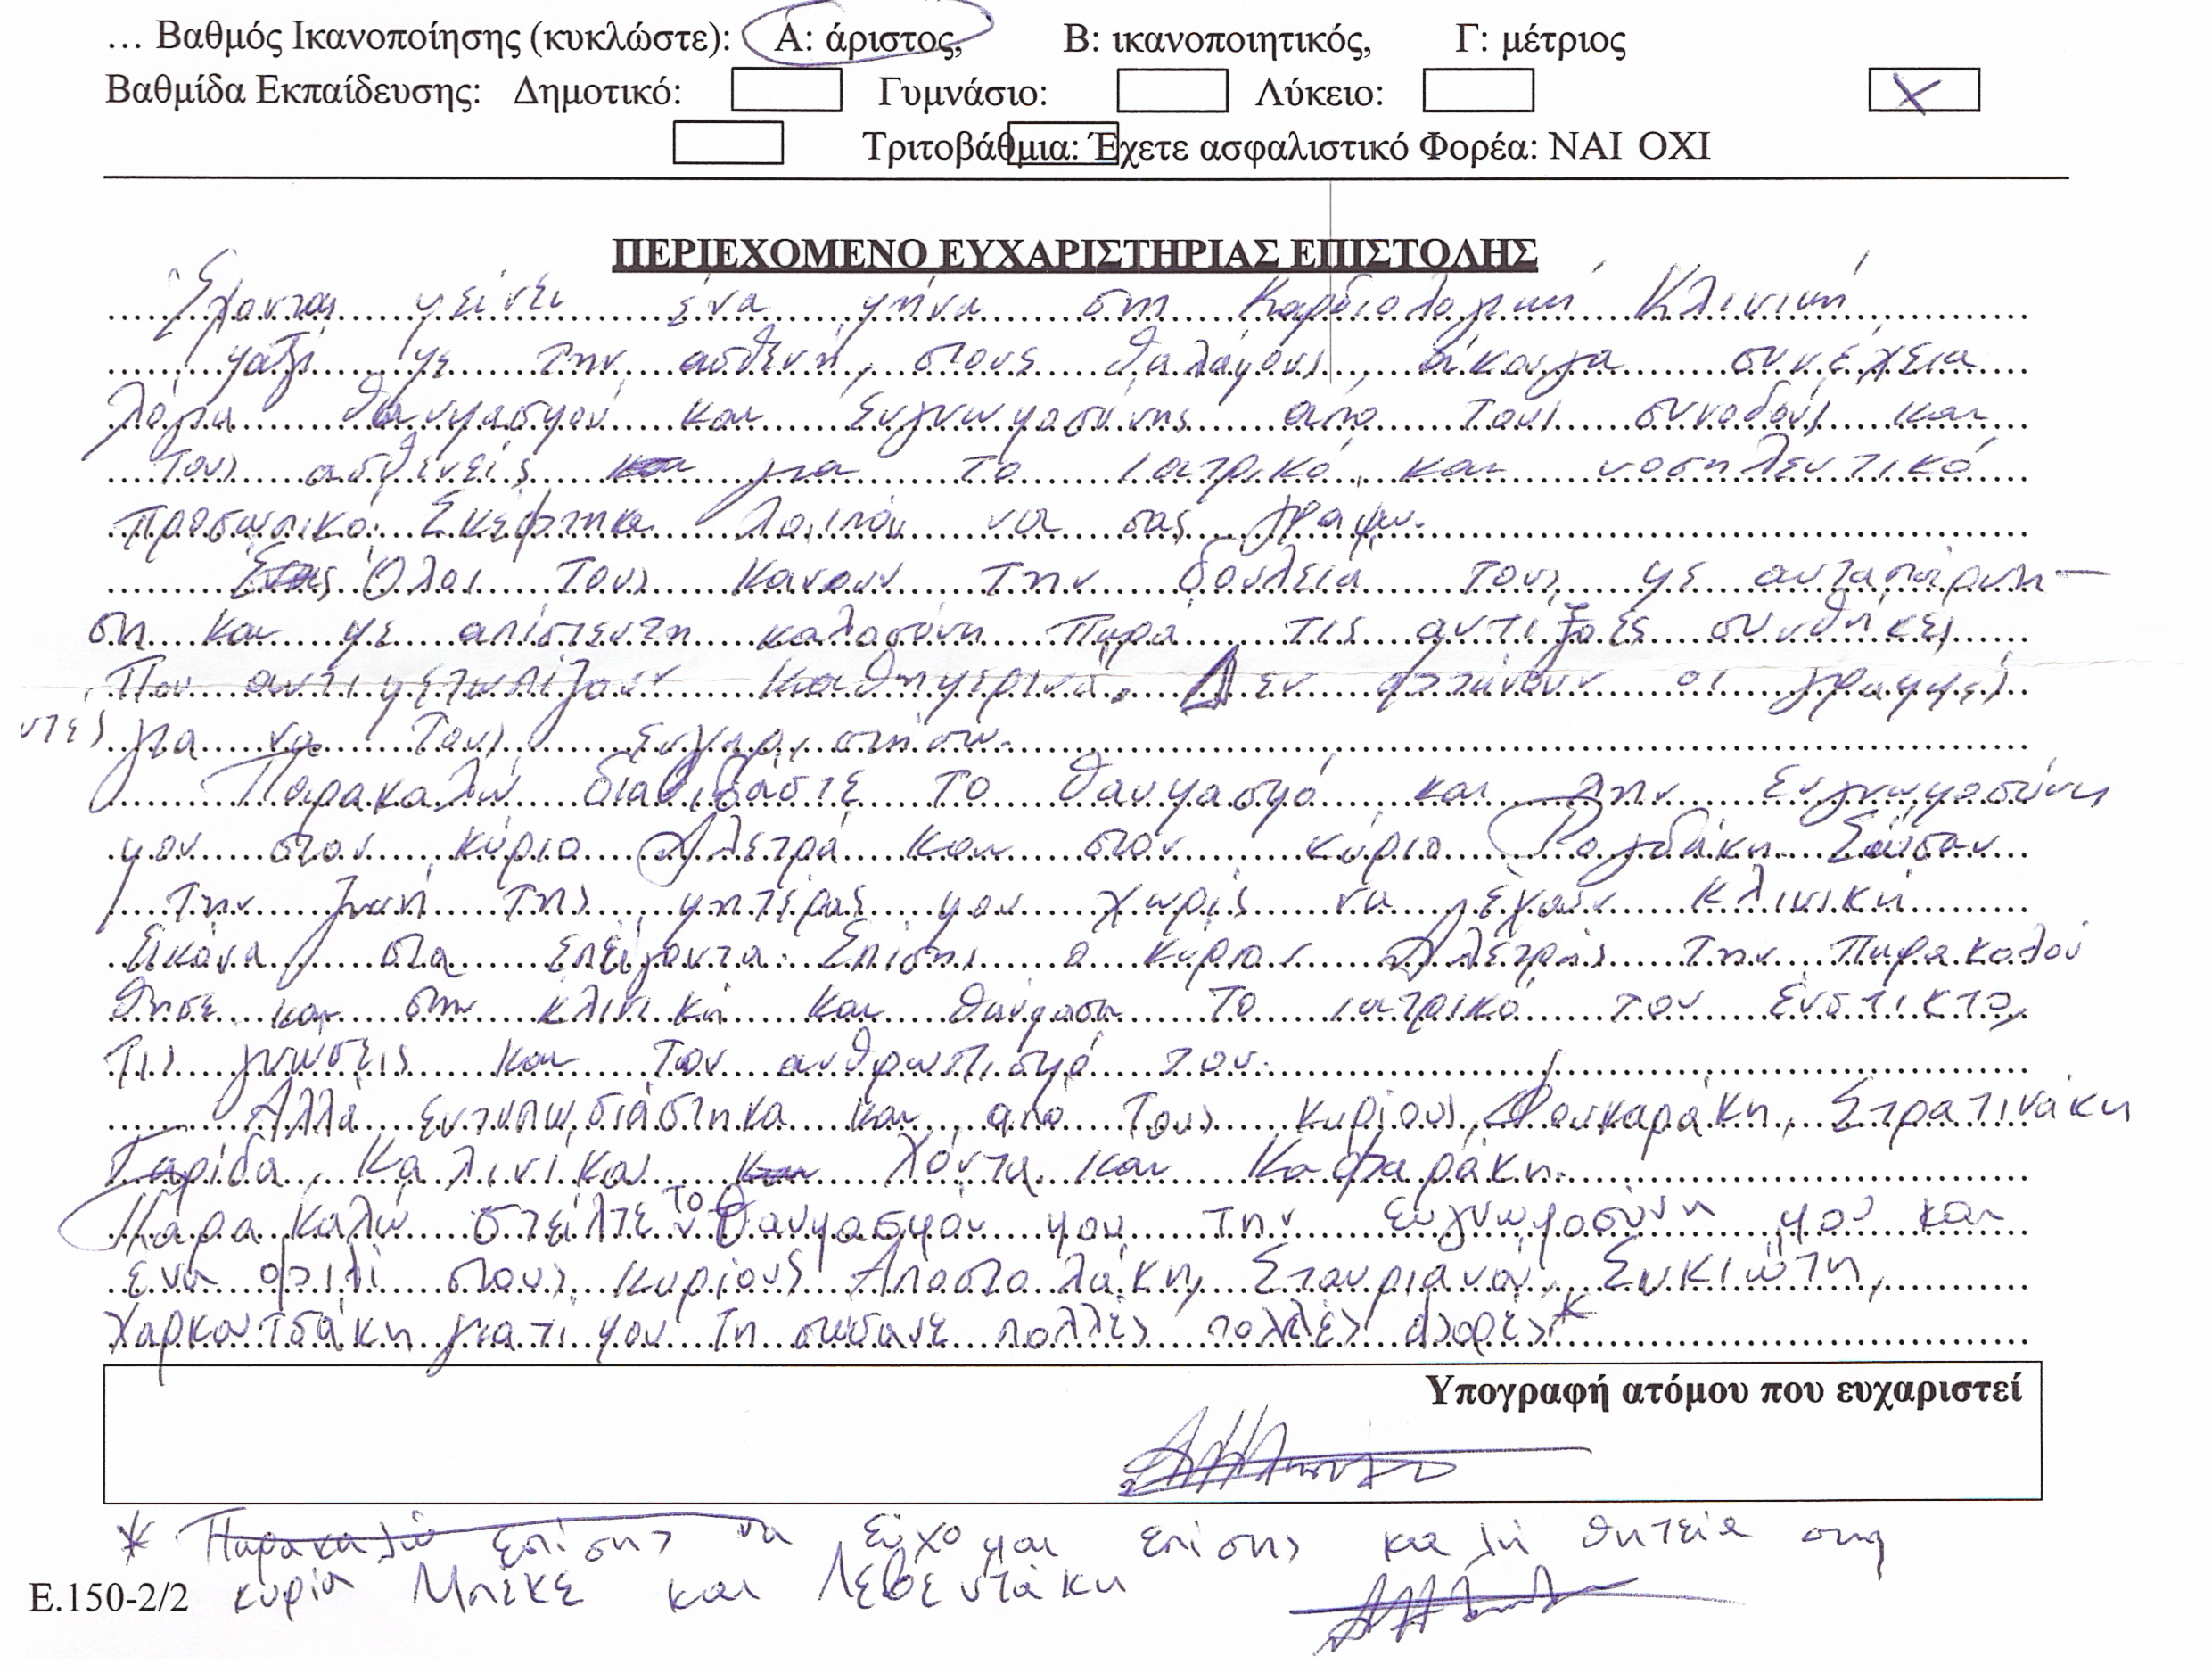 … Βαθμός Ικανοποίησης (κυκλώστε): Α: άριστος, Β: ικανοποιητικός, Γ: μέτριος
Βαθμίδα Εκπαίδευσης: Δημοτικό: Γυμνάσιο: Λύκειο: X
Τριτοβάθμια: Έχετε ασφαλιστικό Φορέα: ΝΑΙ ΟΧΙ
ΠΕΡΙΕΧΟΜΕΝΟ ΕΥΧΑΡΙΣΤΗΡΙΑΣ ΕΠΙΣΤΟΛΗΣ
Έχοντας μείνει ένα μήνα στη Καρδιολογική Κλινική
μαζί με την ασθενή, στους θαλάμους, άκουγα συνέχεια
λόγια θαυμασμού και ευγνωμοσύνης από τους συνοδούς και
τους ασθενείς για το ιατρικό και νοσηλευτικό
προσωπικό. Σκέφτηκα λοιπόν να σας γράψω.
Όλοι τους κάνουν την δουλειά τους με αυταπάρνη-
ση και με απίστευτη καλοσύνη παρά τις αντίξοες συνθήκες
που αντιμετωπίζουν καθημερινά. Δεν φτάνουν οι γραμμές
υτές για να τους ευχαριστήσω.
Παρακαλώ διαβιβάστε το θαυμασμό και την ευγνωμοσύνη
μου στον κύριο Αλετρά και στον κύριο Ρογδάκη. Σώσαν
την ζωή της μητέρας μου χωρίς να έχουν κλινική
εικόνα στα επείγοντα. Επίσης ο κύριος Αλετράς την παρακολού
θησε και στην κλινική και θαύμασα το ιατρικό του ένστικτο,
τις γνώσεις και τον ανθρωπισμό του.
Αλλά εντυπωσιάστηκα και από τους κυρίους, Φουκαράκη, Στρατινάκη
Γαρίδα, Καλινίκου Χόντα και Καφαράκη.
Παρακαλώ στείλτε το θαυμασμόν μου την ευγνωμοσύνη μου και
ένα φιλί στους κυρίους Αποστολάκη, Σταυριανού, Συκιώτη,
Χαρκουτσάκη γιατί μου τη σώσανε πολλές πολλές φορές*
Υπογραφή ατόμου που ευχαριστεί
* Παρακαλώ επίσης να εύχομαι επίσης καλή θητεία στη
κυρία Μπέκε και Λεβεντάκη
Ε.150-2/2